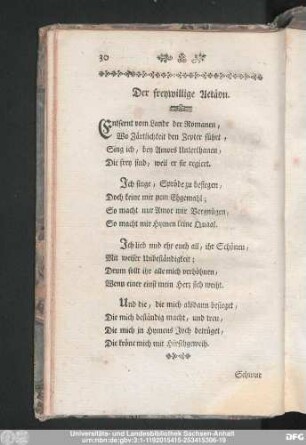 30
Der freywillige Actäon.
Entfernt vom Lande der Romanen,
Wo Zärtlichkeit den Zepter führt,
Sing ich, bey Amors Unterthanen,
Die frey sind, weil er sie regiert.
Ich siege, Spröde zu besiegen,
Doch keine mir zum Ehgemahl;
So macht mir Amor mir Vergnügen,
So macht mir Hymen keine Quaal.
Ich lieb und ehr euch all, ihr Schönen,
Mit weiser Unbeständigkeit;
Drum sollt ihr alle mich verhöhnen,
Wenn einer einst mein Herz sich weiht.
Und die, die mich alsdann besieget,
Die mich beständig macht, und treu,
Die mich in Hymens Joch betrüget,
Die kröne mich mit Hirschgeweih.
Schwur
Universitäts- und Landesbibliothek Sachsen-Anhalt
urn:nbn:de:gbv:3:1-1192015415-253415306-19
DFG